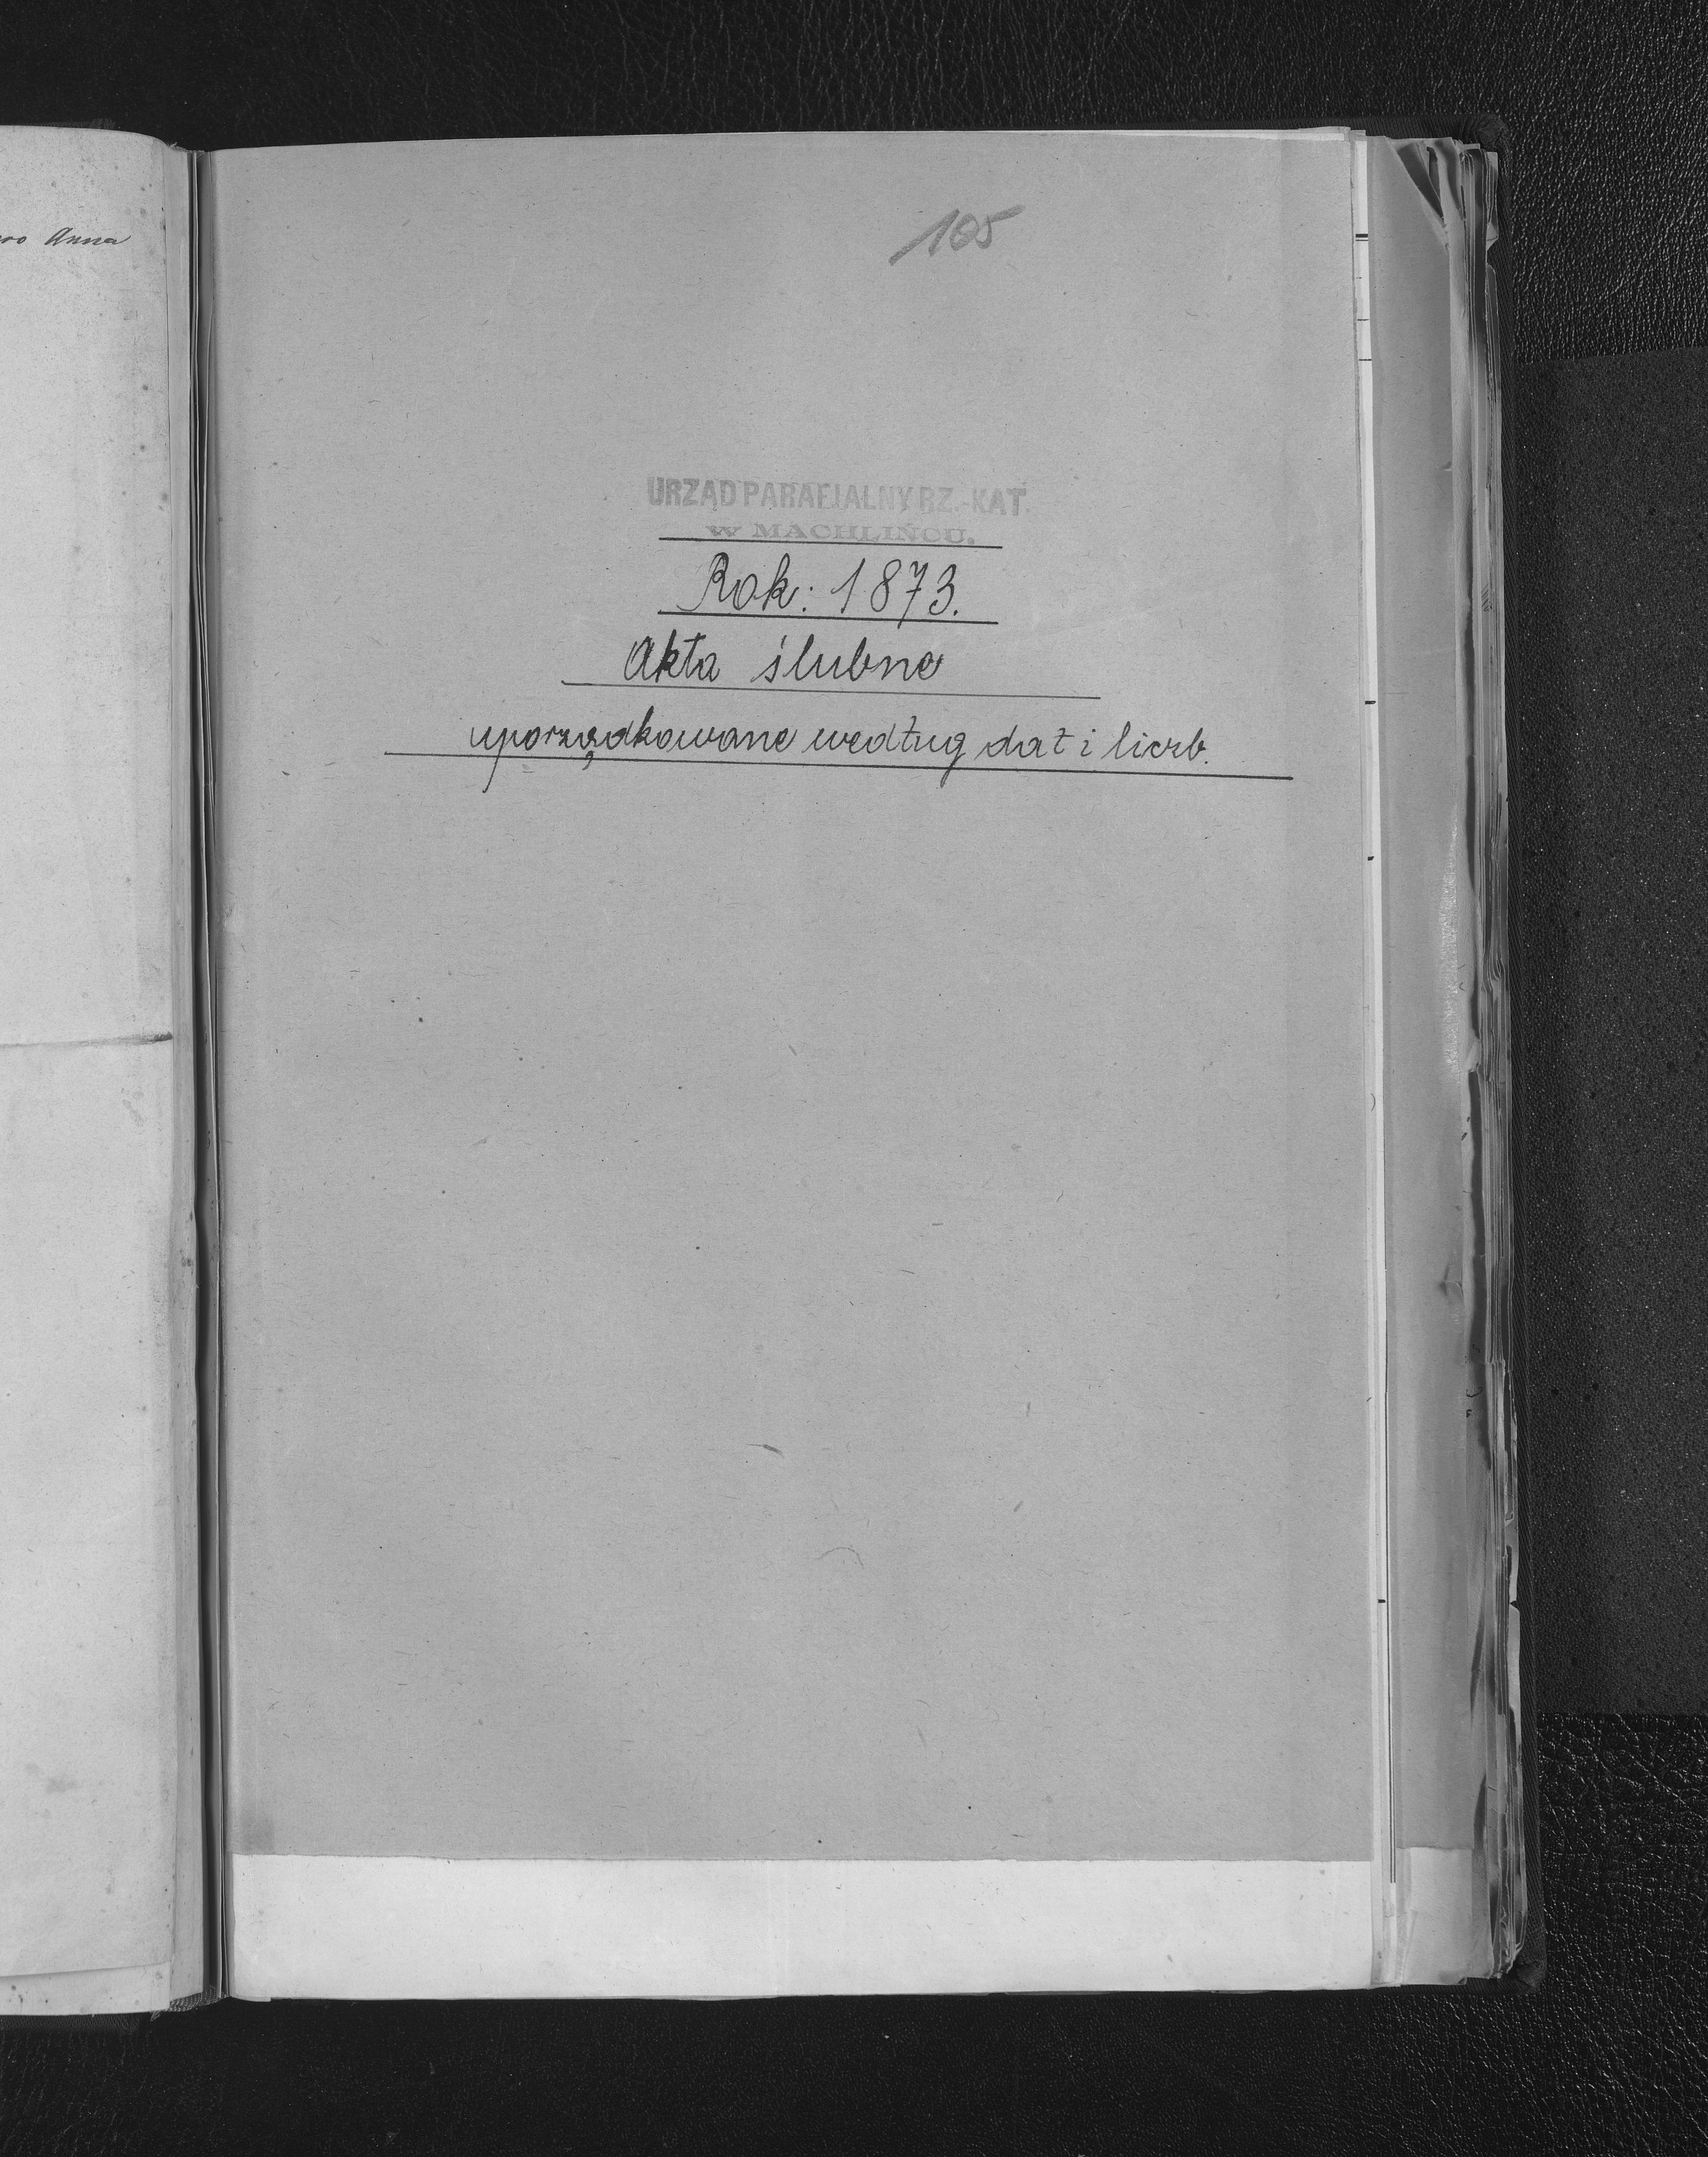 Anna
105
URZĄD PARAFJALNY RZ.-KAT.
W MACHLIŃCU.
Rok: 1873.
Akta ślubne
uporządkowane według dat i liczb.